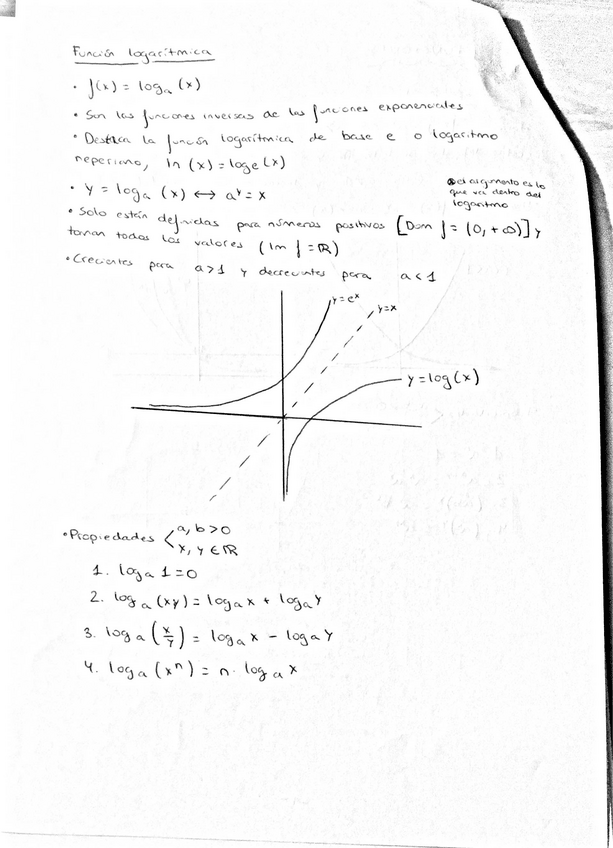 Función logarítmica
· f(x) = logₐ (x)
· Son las funciones inversas de las funciones exponenciales
· Destaca la función logarítmica de base e o logaritmo
neperiano, ln (x) = logₑ (x)
· y = logₐ (x) ↔ aʸ = x
el argumento es lo
que va dentro del
logaritmo
· Solo están definidas para números positivos [Dom f = (0, +∞)] y
toman todos los valores (Im f = ℝ)
· Crecientes para a > 1 y decrecientes para a < 1
y = eˣ
y = x
y = log(x)
· Propiedades < a, b > 0
x, y ∈ ℝ
1. logₐ 1 = 0
2. logₐ (xy) = logₐ x + logₐ y
3. logₐ (x/y) = logₐ x - logₐ y
4. logₐ (xⁿ) = n · logₐ x